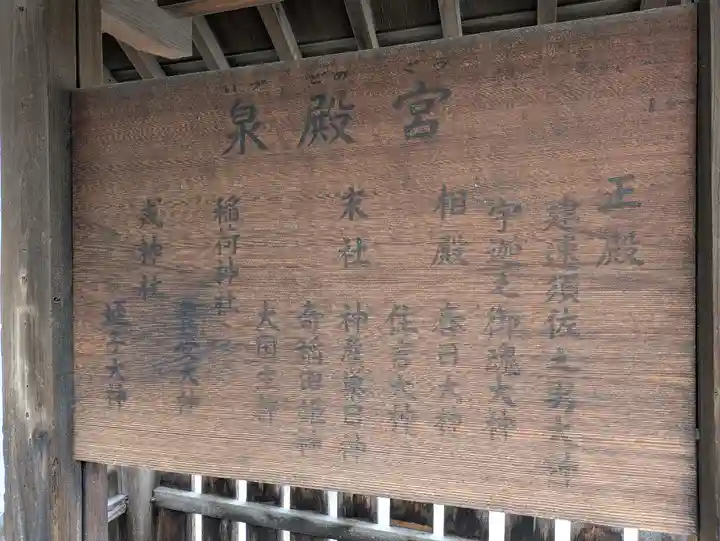 泉殿宮
いづどのぐう
正殿
建速須佐之男大神
宇迦之御魂大神
相殿
春日大神
住吉大神
末社
神産巣日神
奇稲田姫神
大国主神
稲荷神社
大神
戎神社
蛭子大神